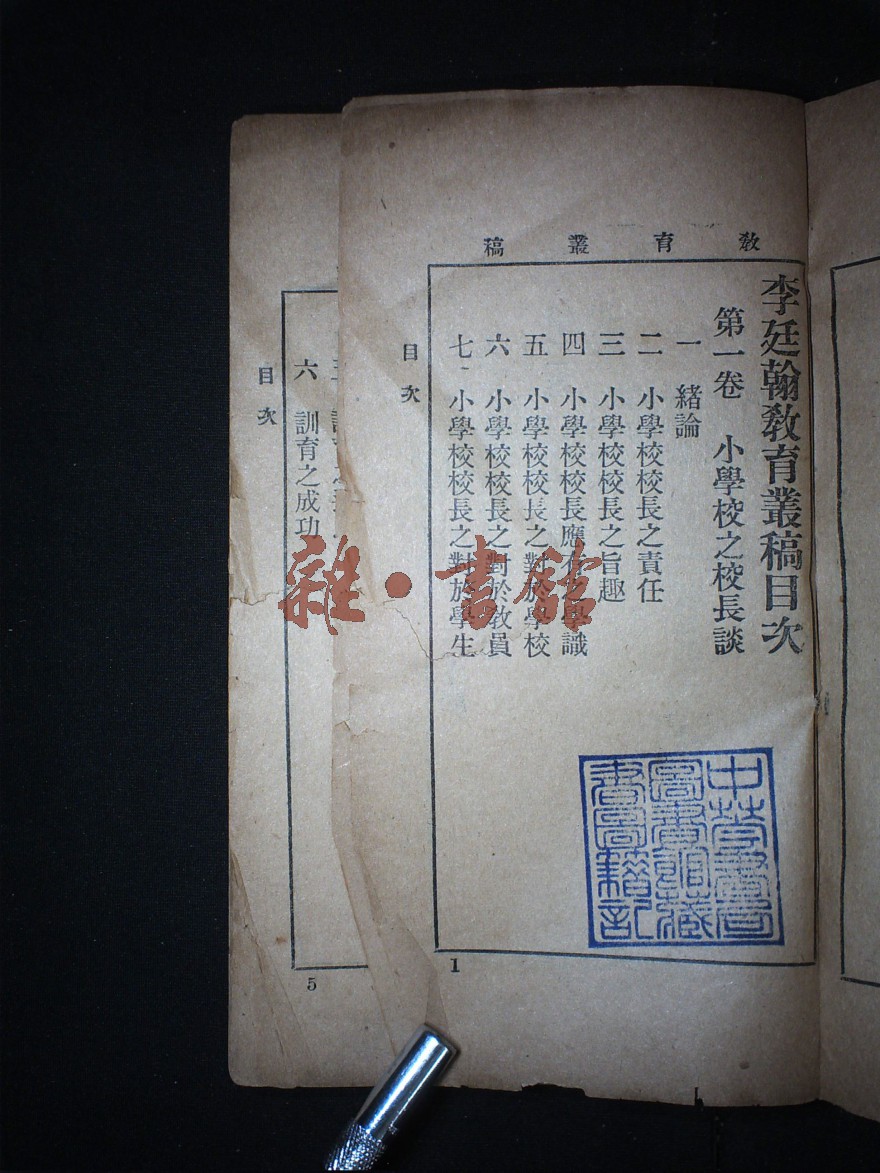 教育叢稿
李廷翰教育叢稿目次
第一卷 小學校之校長談
一 緒論
二 小學校校長之責任
三 小學校校長之旨趣
四 小學校校長應有之學識
五 小學校校長之對於學校
六 小學校校長之對於教員
七 小學校校長之對於學生
目次
1
中華書局
圖書館藏
書圖籍記
雜·書館
六 訓育之成功
目次
5